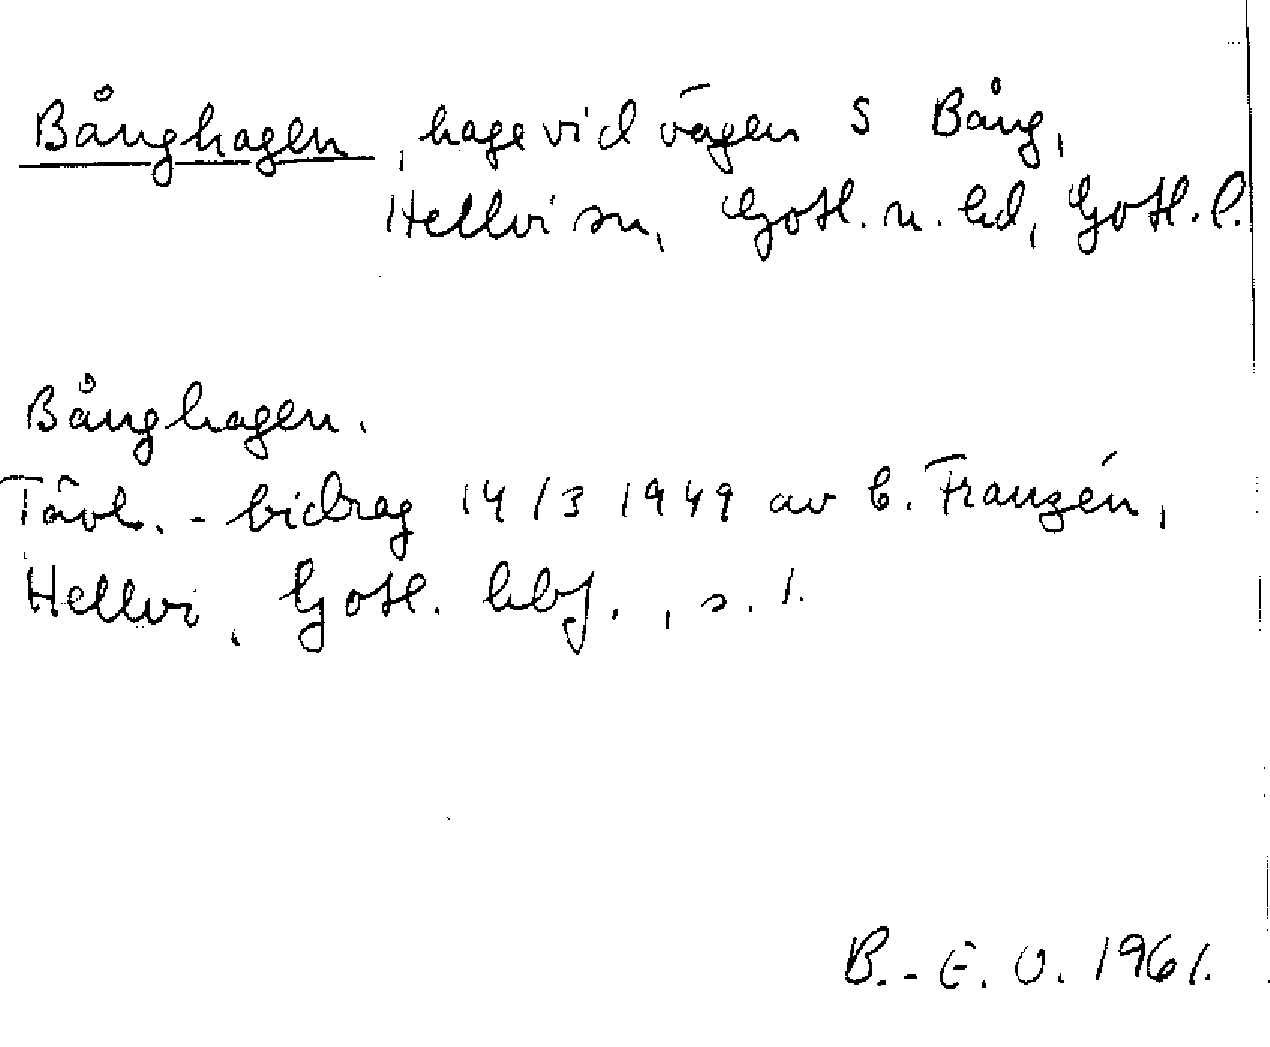 Bånghagen, hage vid vägen S Bång,
Hellvi sn, Gotl. n. hd, Gotl. l.
Bånghagen.
Tävl.-bidrag 14/3 1949 av C. Franzén,
Hellvi, Gotl. hbf., s. 1.
B.-E. O. 1961.